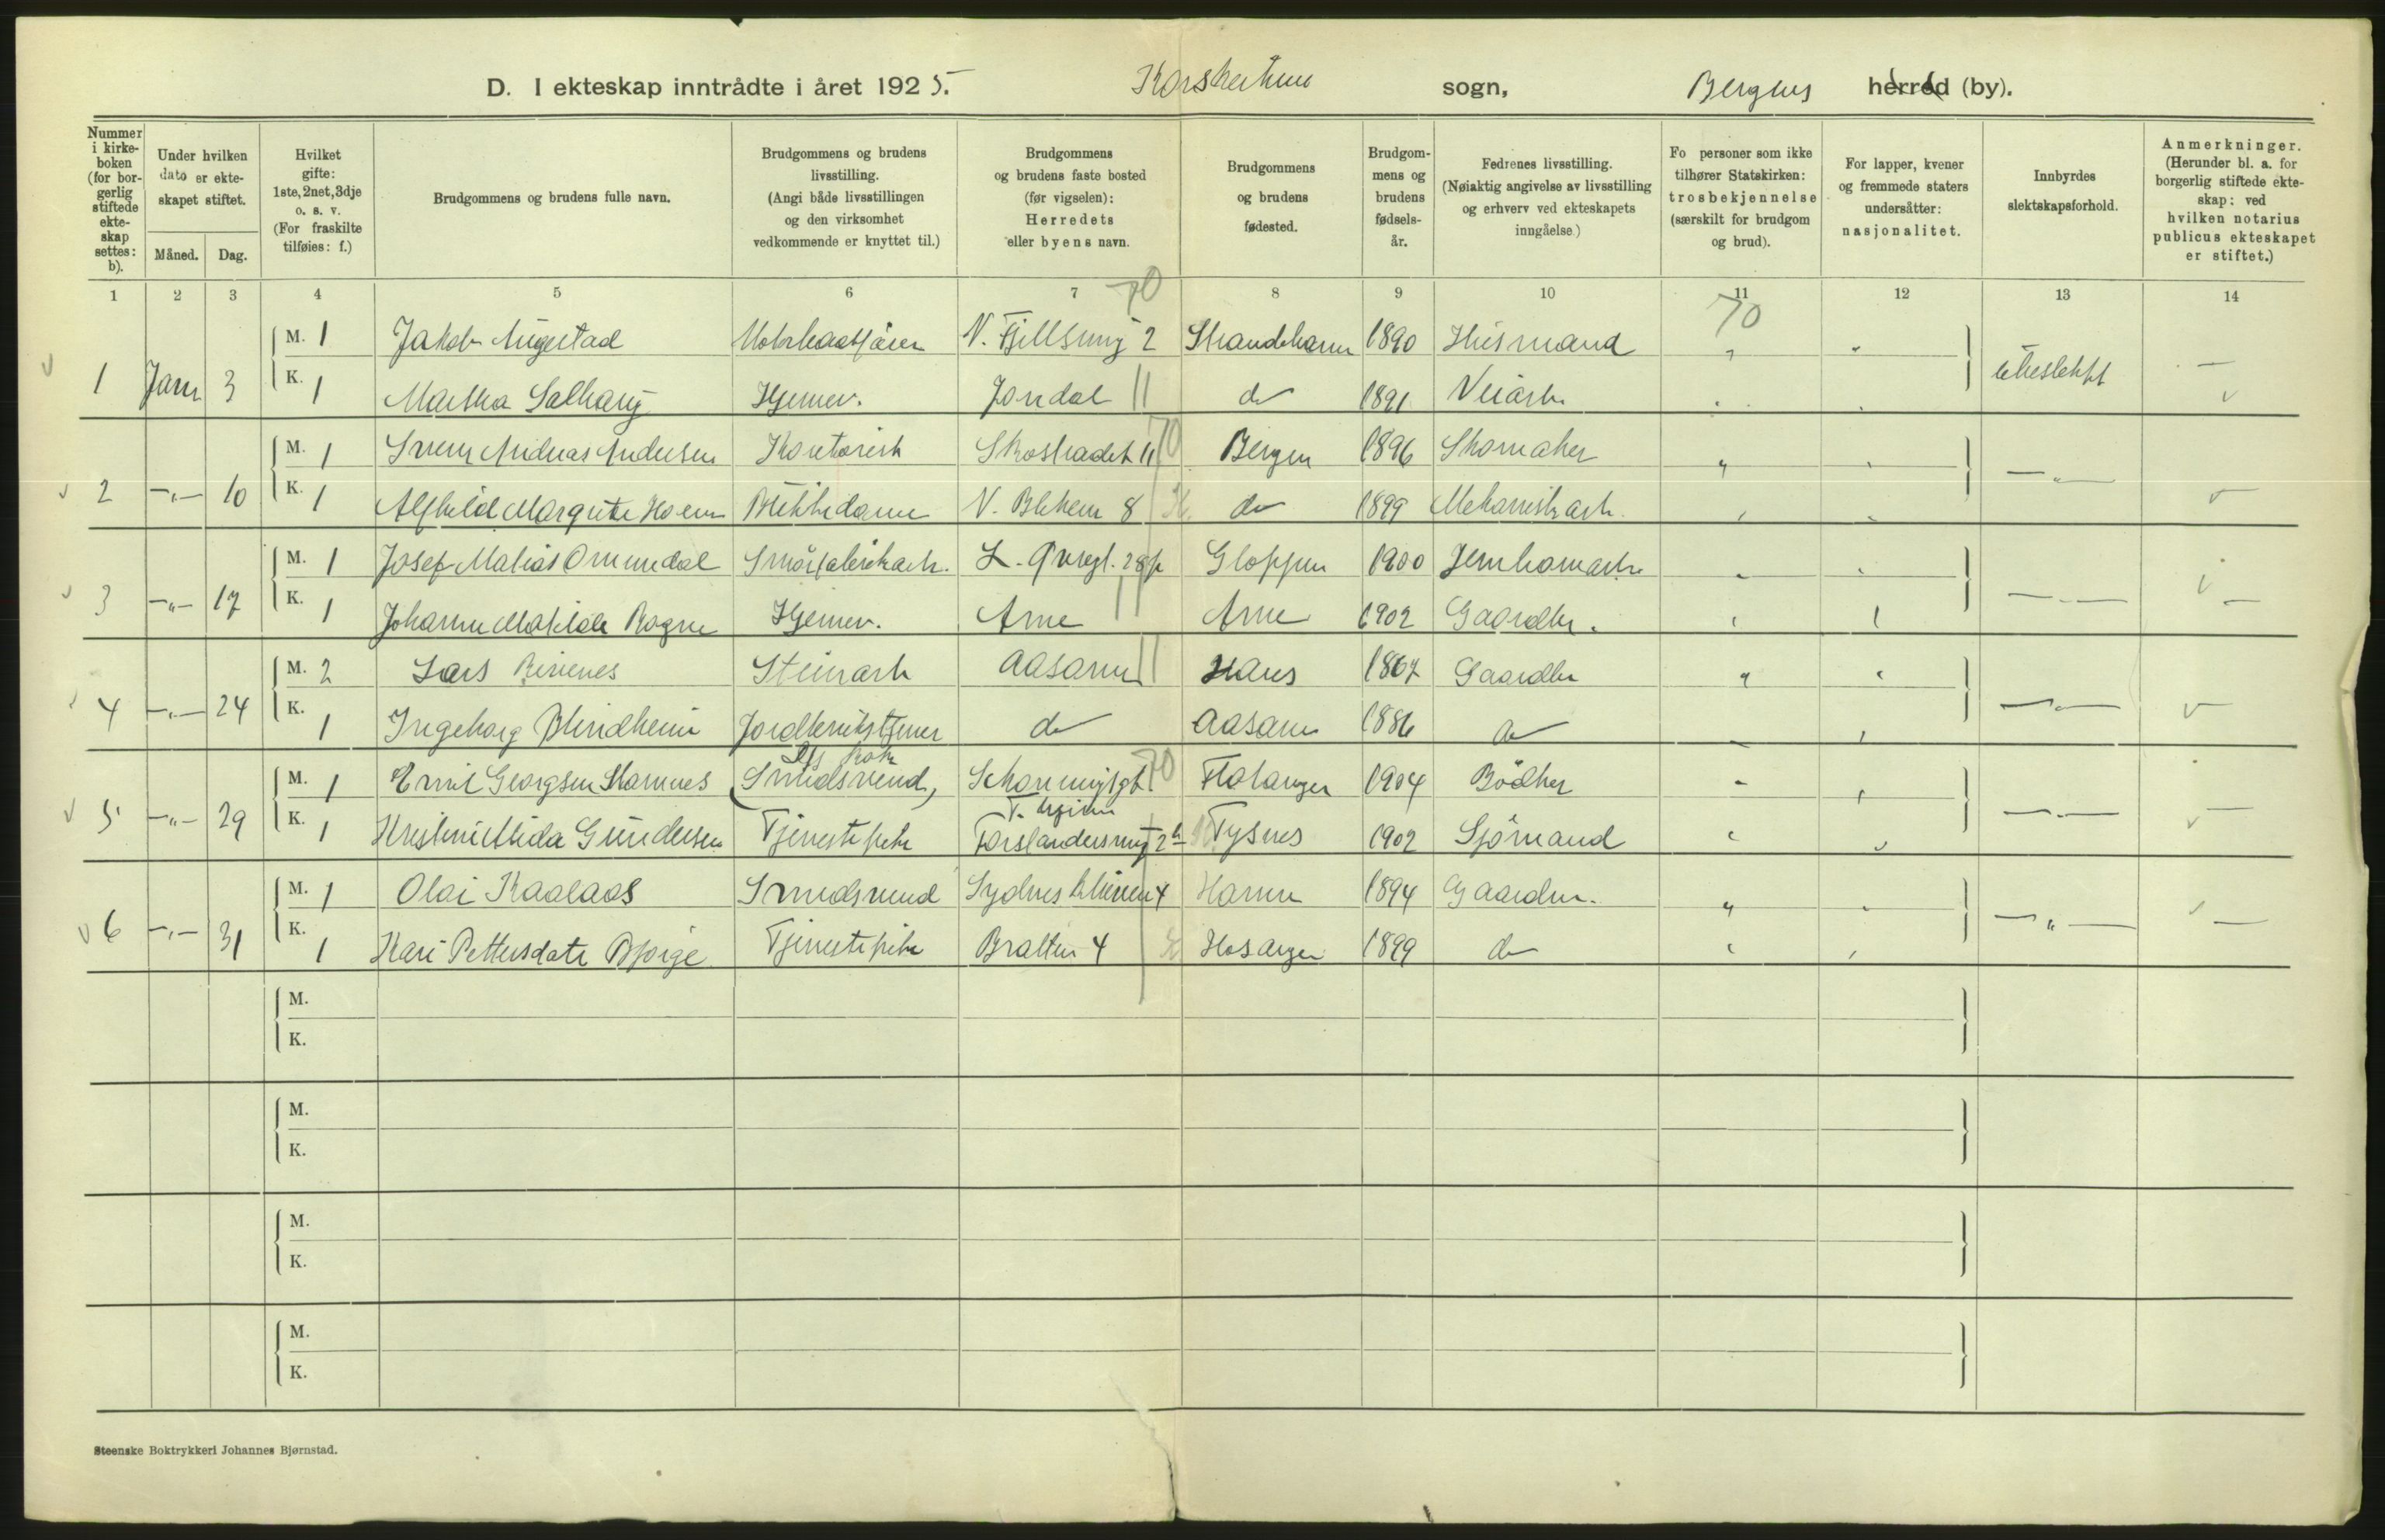 D. I ekteskap inntrådte i året 1925. Korskirkens sogn, Bergens herred (by).
Nummer i kirkeboken (for borgerlig stiftede ekteskap settes: b).
Under hvilken dato er ekteskapet stiftet.
Måned. Dag.
Hvilket gifte: 1ste, 2net, 3dje o. s. v. (For fraskilte tilføies: f.)
Brudgommens og brudens fulle navn.
Brudgommens og brudens livsstilling. (Angi både livsstillingen og den virksomhet vedkommende er knyttet til.)
Brudgommens og brudens faste bosted (før vigselen): Herredets eller byens navn.
Brudgommens og brudens fødested.
Brudgommens og brudens fødselsår.
Fedrenes livsstilling. (Nøiaktig angivelse av livsstilling og erhverv ved ekteskapets inngåelse.)
Fo personer som ikke tilhører Statskirken: trosbekjennelse (særskilt for brudgom og brud).
For lapper, kvener og fremmede staters undersåtter: nasjonalitet.
Innbyrdes slektskapsforhold.
Anmerkninger. (Herunder bl. a. for borgerlig stiftede ekteskap: ved hvilken notarius publicus ekteskapet er stiftet.)
1 2 3 4 5 6 7 8 9 10 11 12 13 14
70 70
M. 1 Jakob Augestad N. Fjellsmug 2 Strandebarm 1890 Husmand " "
1 Janr 3 ikke slekt —
K. 1 Martha Jondal do 1891 Veiarb.
M. 1 Sverre Andreas Andersen Kontorist Skostrædet 11 70 Bergen 1896 Skomaker "
2 —"— 10 —"—
K. 1 Alfhild Margrete Butikkdame N. Blekevn 8 do 1899 Mekanisk arb.
M. 1 Josef Matias Ommedal Smørfabrikarb. Gloppen 1900 Jernbanearb.
3 —"— 17 —"— —
K. 1 Johanne Matilde Rogne Hjemmev. Arne Arne 1902 Gaardbr.
M. 2 Lars Stenarb Aasane Haus 1867 Gaardbr "
4 —"— 24 —"—
K. 1 Ingeborg Blindheim do Aasane 1886 do
M. 1 Emil Georgsen (Smedsvend) 70 Flatanger 1904 Bödker
5 —"— 29 —"— —
K. 1 Alida Gundersen Tjenestepike Tysnes 1902 Sjömand
M. 1 Olai Kaalaas Smedsvend Sydnes 4 Hamre 1894 Gaardbr. "
6 —"— 31 —"— —
K. 1 Kari Pettersdatr Bjørge Tjenestepike Bratten 4 Hosanger 1899 do
M.
K.
M.
K.
M.
K.
M.
K.
Steenske Boktrykkeri Johannes Bjørnstad.